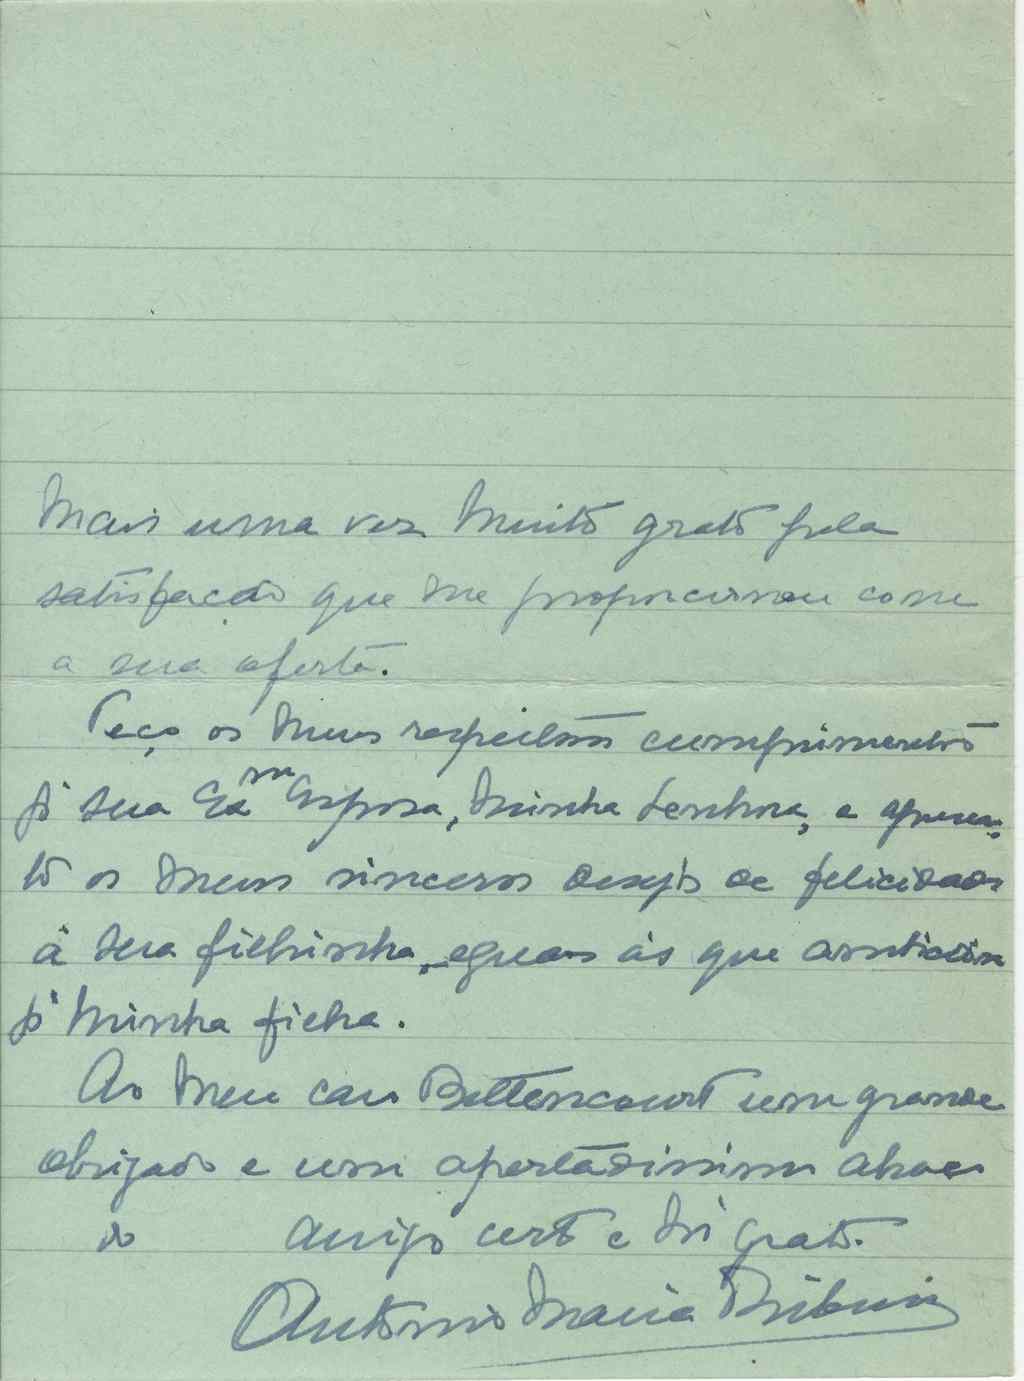 Mais uma vez muito grato pela
satisfação que me proporcionou com
a sua oferta.
Peço os meus respeitosos cumprimentos
pª sua Exma Esposa, minha Senhora, e apresen-
to os meus sinceros desejos de felicidades
à sua filhinha, eguaes às que
pª minha filha.
Ao meu caro Bettencourt um grande
obrigado e um apertadissimo abraço
do amigo certo e mt grato.
António Maria Ribeiro